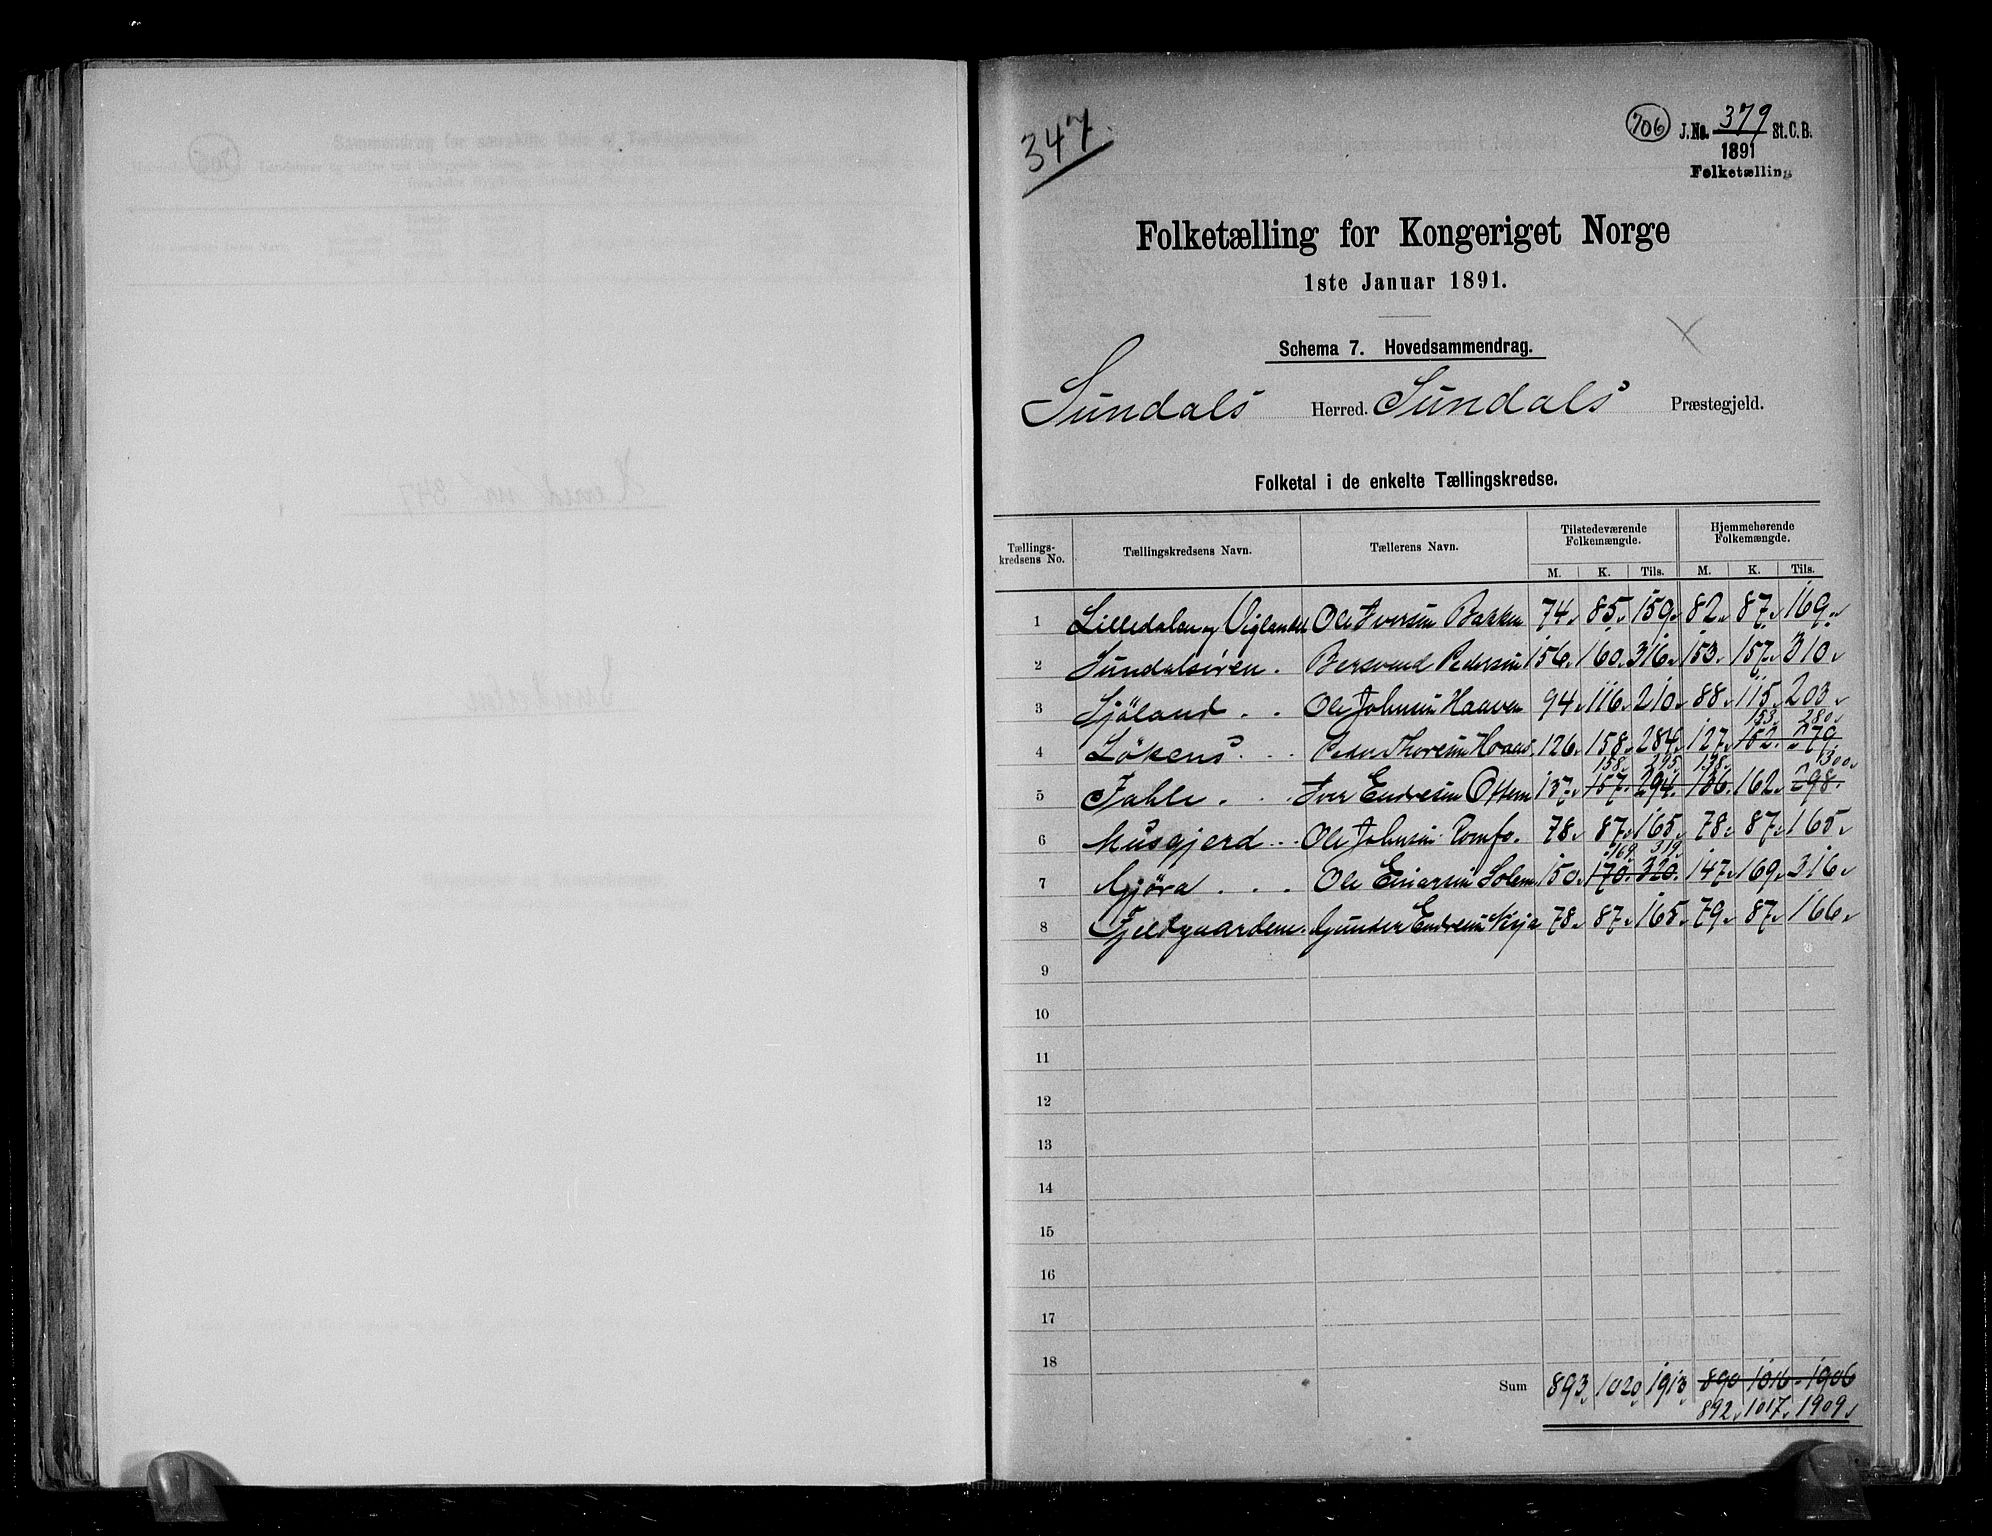 347.
706 J.No. 379 St.C.B.
1891
Folketælling
Folketælling for Kongeriget Norge
1ste Januar 1891.
Schema 7. Hovedsammendrag.
Sundals Herred. Sundals Præstegjeld.
Folketal i de enkelte Tællingskredse.
Tællings-kredsens No. Tællingskredsens Navn. Tællerens Navn. Tilstedeværende Folkemængde. Hjemmehørende Folkemængde.
M. K. Tils. M. K. Tils.
1 Lilledalen og Viglandet Ole Iversen Bakken 74 85 159 82 87 169
2 Sundalsören Bersvend Pedersen 156 160 316 153 157 310
3 Sjöland Ole Johnsen Haaven 94 116 210 88 115 203
153 280
4 Lökens Peder Thoresen Hoaas 126 158 284 127 152 279
158 295 138 300
5 Fahle Iver Endresen Ottem 137 157 294 136 162 298
6 Musgjerd Ole Johnsen Romfo 78 87 165 78 87 165
169 319
7 Gjöra Ole Einarsen Solem 150 170 320 147 169 316
8 Fjeldgaardene Gunder Endresen 78 87 165 79 87 166
9
10
11
12
13
14
15
16
17
18
Sum 893 1020 1913 890 1016 1906
892 1017 1909